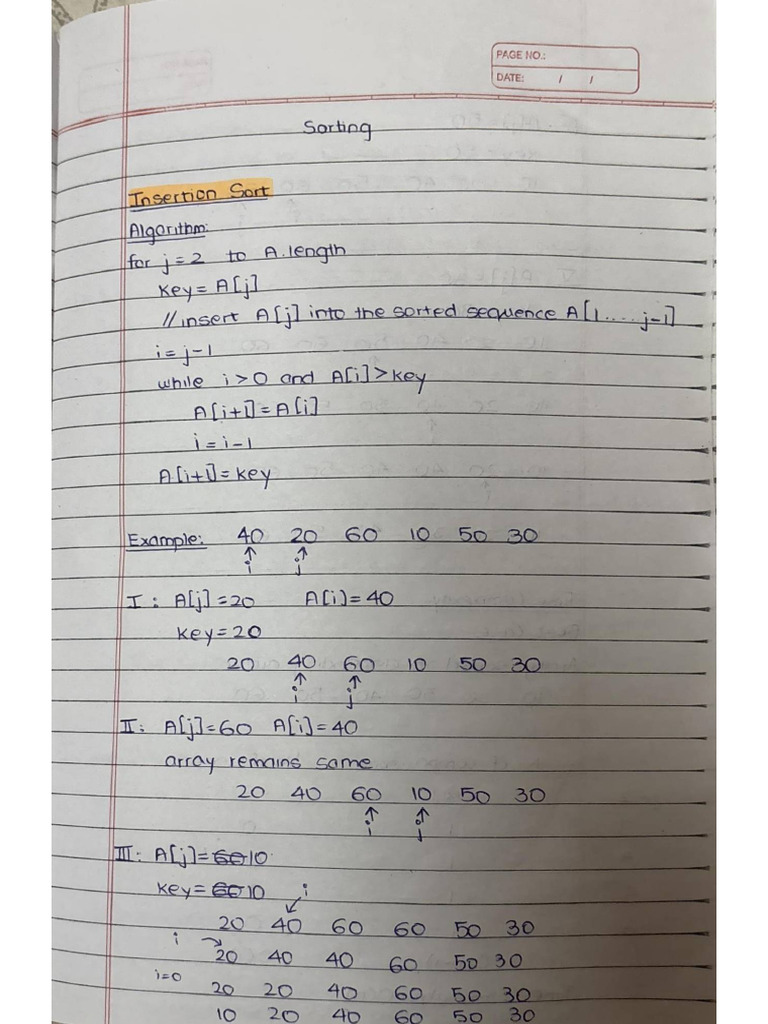 PAGE NO.:
DATE: / /
Sorting
Insertion Sort
Algorithm:
for j = 2 to A.length
key = A[j]
// insert A[j] into the sorted sequence A[1....j-1]
i = j-1
while i > 0 and A[i] > key
A[i+1] = A[i]
i = i-1
A[i+1] = key
Example: 40 20 60 10 50 30
↑ ↑
i j
I : A[j] = 20 A[i] = 40
key = 20
20 40 60 10 50 30
↑ ↑
i j
II: A[j] = 60 A[i] = 40
array remains same
20 40 60 10 50 30
↑ ↑
i j
III: A[j] = 60 10
key = 60 10 i
20 40 60 60 50 30
i
20 40 40 60 50 30
i=0
20 20 40 60 50 30
10 20 40 60 50 30